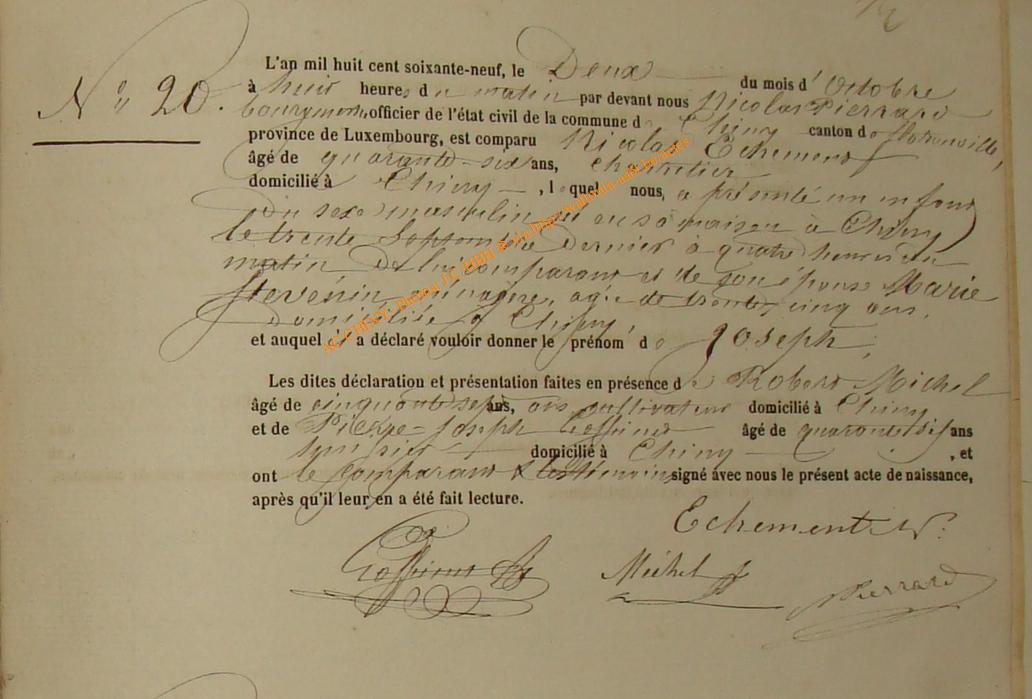 N° 20.
L'an mil huit cent soixante-neuf, le Deux du mois d' Octobre
à huit heures du matin par devant nous Nicolas Pierrard
bourgmestre, officier de l'état civil de la commune de Chiny canton de florenville,
province de Luxembourg, est comparu Nicolas Echement
âgé de quarante-six ans, charretier
domicilié à Chiny, lequel nous, a présenté un enfant
du sexe masculin né en sa maison à Chiny
le trente Septembre dernier à quatre heures du
matin de lui comparant et de son épouse Marie
Stevenin, ménagère, agée de trente-cinq ans,
domiciliée à Chiny,
et auquel il a déclaré vouloir donner le prénom de Joseph,
Les dites déclaration et présentation faites en présence de Robert Michel
âgé de cinquante sept ans, cultivateur domicilié à Chiny
et de Pierre-Joseph Goffinet âgé de quarante six ans
domicilié à Chiny, et
ont le comparant & les témoins signé avec nous le présent acte de naissance,
après qu'il leur en a été fait lecture.
Echement N.
Goffinet Michel Pierrard